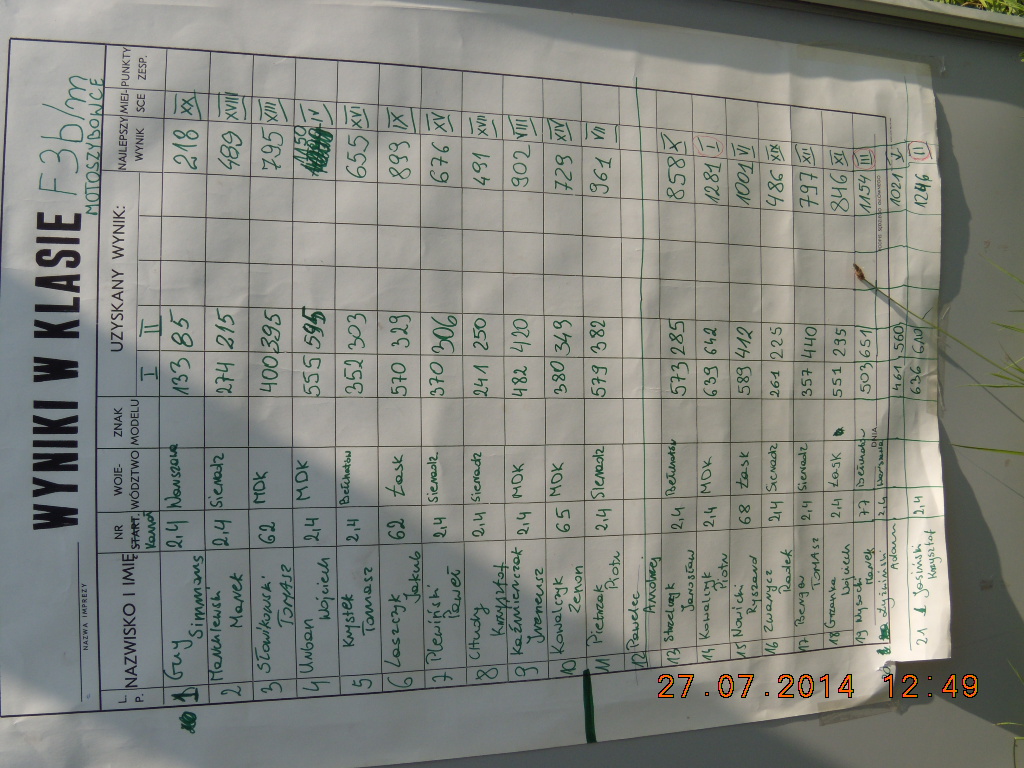 WYNIKI W KLASIE F3b/m
MOTOSZYBOWCE
NAZWA IMPREZY
L. P. NAZWISKO I IMIĘ NR START. WOJE- WÓDZTWO ZNAK MODELU UZYSKANY WYNIK: NAJLEPSZY WYNIK MIEJ- SCE PUNKTY ZESP.
Kanał I II
1 Guy Simmons 2,4 Warszawa 133 85 218 XX
2 Marek 2,4 Sieradz 274 215 489 XVIII
3 Sławkowski Tomasz 62 MDK 400 395 795 XIII
4 Urban Wojciech 2,4 MDK 555 595 1150 IV
5 Krystek Tomasz 2,4 Bełchatów 352 303 655 XVI
6 Łaszczyk Jakub 62 Łask 570 329 899 IX
7 Plewiński Paweł 2,4 Sieradz 370 306 676 XV
8 Chudy Krzysztof 2,4 Sieradz 241 250 491 XVII
9 Kaźmierczak Ireneusz 2,4 MDK 482 420 902 VIII
10 Kowalczyk Zenon 65 MDK 380 349 729 XIV
11 Pietrzak Piotr 2,4 Sieradz 579 382 961 VII
12 Pawelec Andrzej
13 Strzelczyk Jarosław 2,4 Bełchatów 573 285 858 X
14 Kowalczyk Piotr 2,4 MDK 639 642 1281 I
15 Nowicki Ryszard 68 Łask 589 412 1001 VI
16 Radek 2,4 Sieradz 261 225 486 XIX
17 Tomasz 2,4 Sieradz 357 440 797 XII
18 Grzanka Wojciech 2,4 Łask 551 295 846 XI
19 Wysocki Marek 77 Bełchatów 503 651 1154 III
Adam 2,4 Warszawa 560 V
21 Jasiński Krzysztof 2,4 636 610 1246 II
DNIA
27.07.2014 12:49